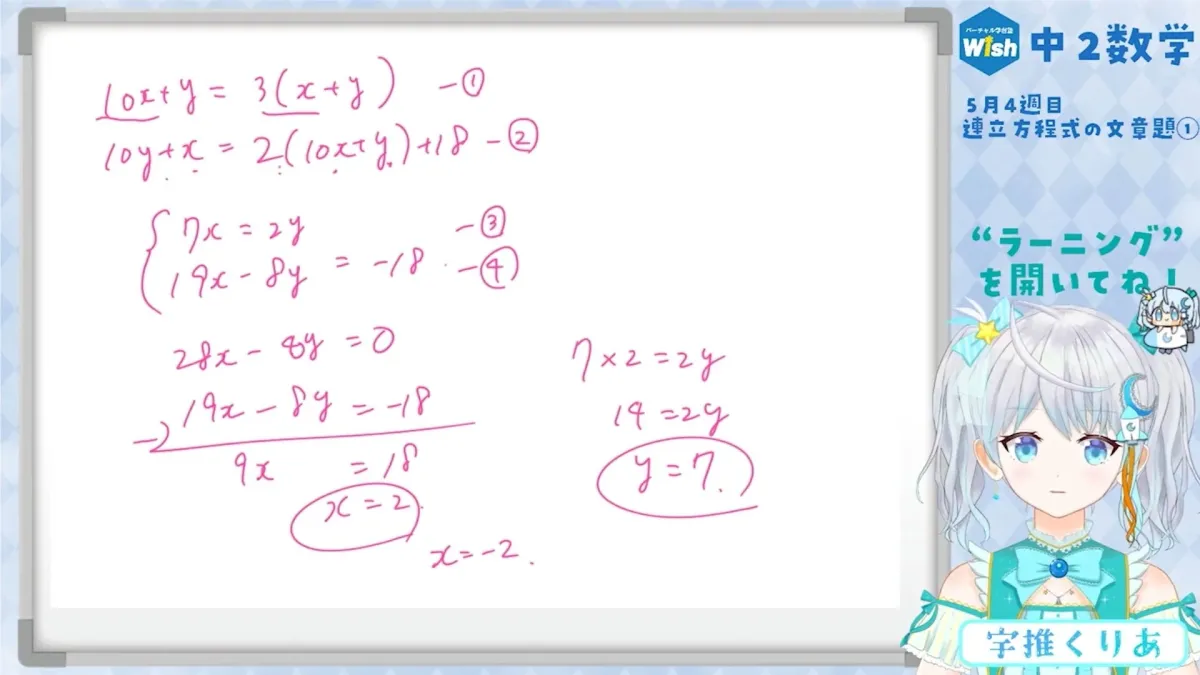 10x+y = 3(x+y) -①
10y+x = 2(10x+y)+18 -②
7x = 2y -③
19x - 8y = -18 -④
28x - 8y = 0
-) 19x - 8y = -18
9x = 18
x = 2
x = -2.
7×2 = 2y
14 = 2y
y = 7.
バーチャル学習塾
Wish
中2数学
5月4週目
連立方程式の文章題①
“ラーニング”
を開いてね！
字推くりあ